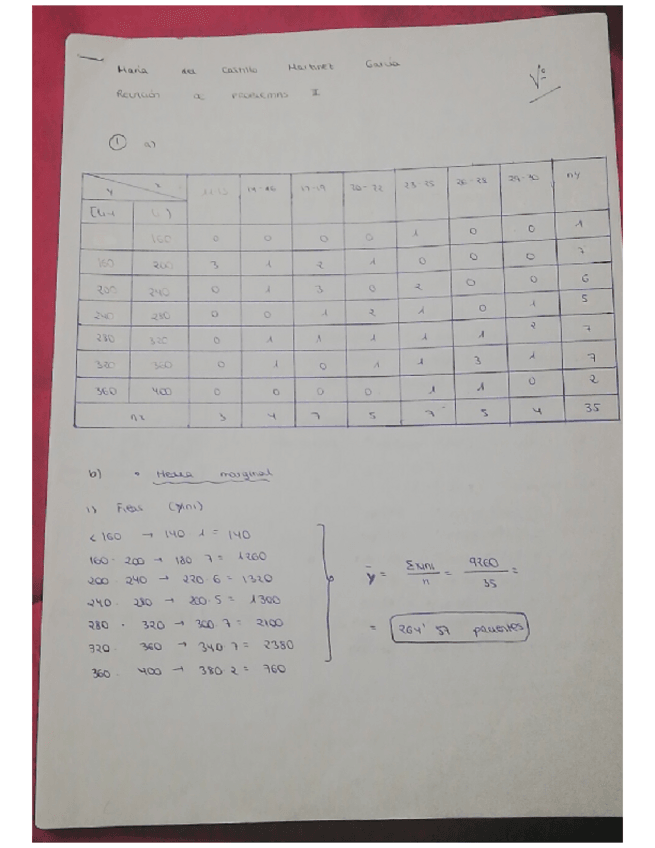 Maria del Castillo Martinez García
Relación de problemas I
Vº
① a)
y x 14-16 17-19 20-22 23-25 26-28 29-30 ny
160 0 0 0 0 1 0 0 1
160 200 3 1 2 1 0 0 0 7
200 240 0 1 3 0 2 0 0 6
240 280 0 0 1 2 1 0 1 5
280 320 0 1 1 1 1 1 2 7
320 360 0 1 0 1 1 3 1 7
360 400 0 0 0 0 1 1 0 2
nx 3 4 7 5 7 5 4 35
b) • Media marginal
< 160 → 140 · 1 = 140
160 - 200 → 180 · 7 = 1260
200 - 240 → 220 · 6 = 1320
240 - 280 → · 5 = 1300
280 - 320 → 300 · 7 = 2100
320 - 360 → 340 · 7 = 2380
360 - 400 → 380 · 2 = 760
ȳ = Σxini / n = 9260 / 35 =
= 264' 57 pacientes